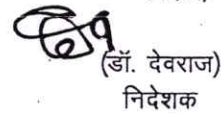 (डॉ. देवराज)
निदेशक